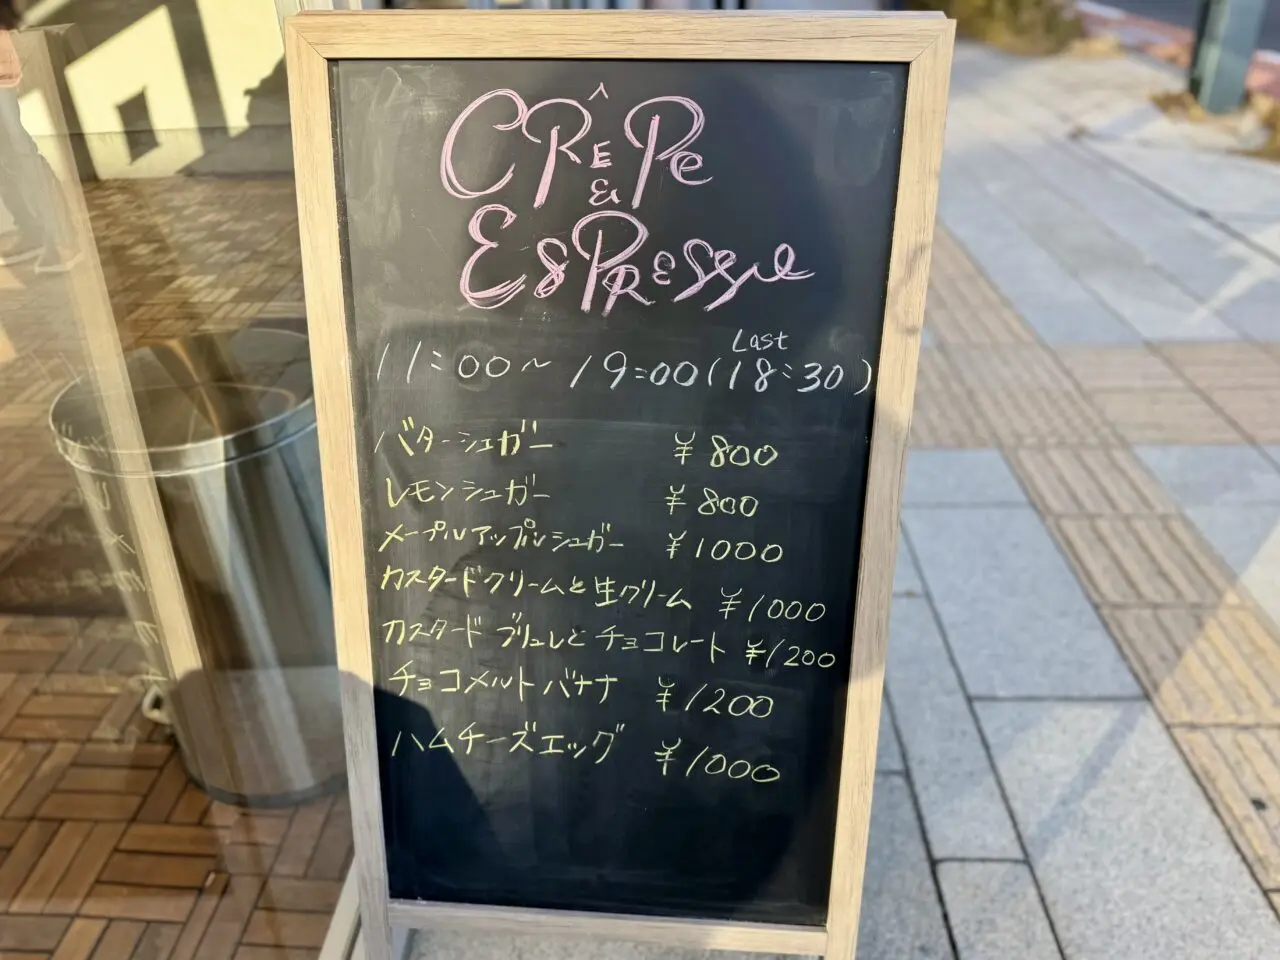 CRÊPE
&
ESPRESSO
11:00~19:00(Last 18:30)
バターシュガー ¥800
レモンシュガー ¥800
メープルアップルシュガー ¥1000
カスタードクリームと生クリーム ¥1000
カスタードブリュレとチョコレート ¥1200
チョコメルトバナナ ¥1200
ハムチーズエッグ ¥1000